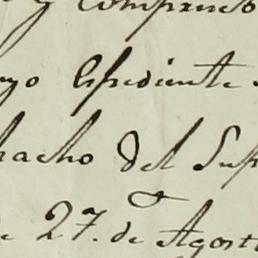 y comprueb
yo Espediente
pacho del Sup
e 27. de Agost